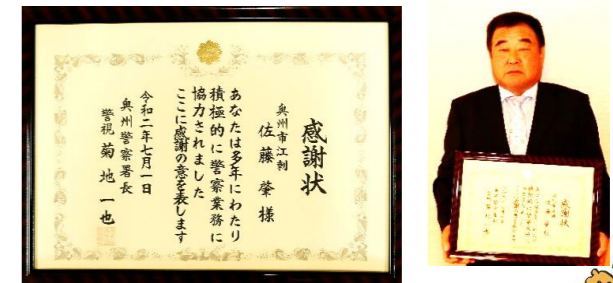 感謝状
奥州市江刺
佐藤肇様
あなたは多年にわたり
積極的に警察業務に
協力されました
ここに感謝の意を表します
令和二年七月一日
奥州警察署長
警視菊地一也
感謝状